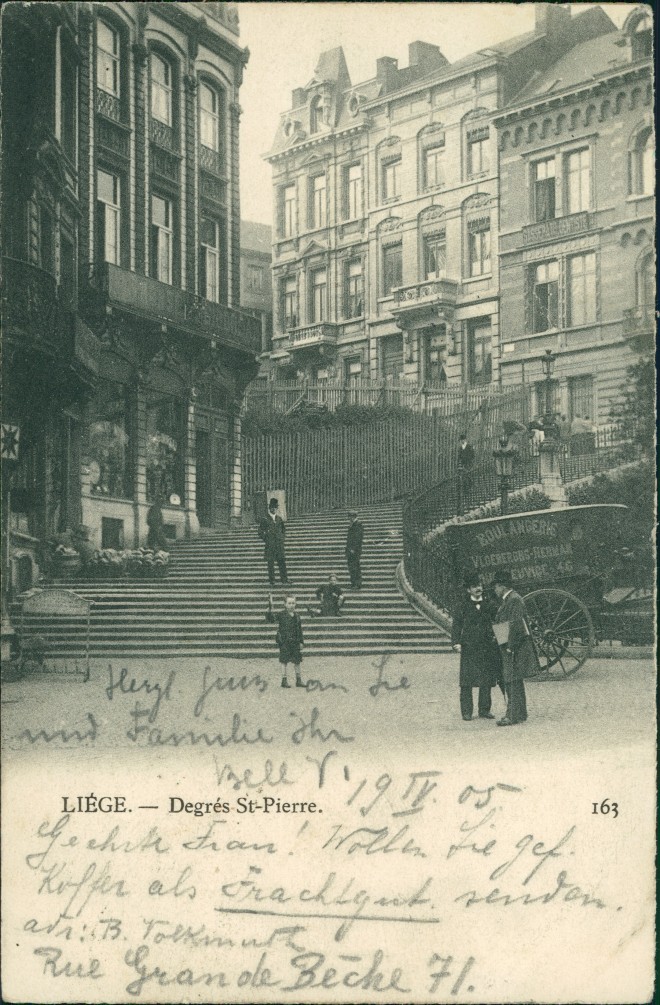 BOULANGERIE
VLOEBERGS-
Herzl. Gruss an Sie
und Familie Ihr
Bell
19 IV. 05
LIÉGE. — Degrés St-Pierre.
163
Geehrte Frau! Wollen Sie gef.
Koffer als Frachtgut senden.
adr: B. Tolkmuth
Rue Grande Bêche 71.